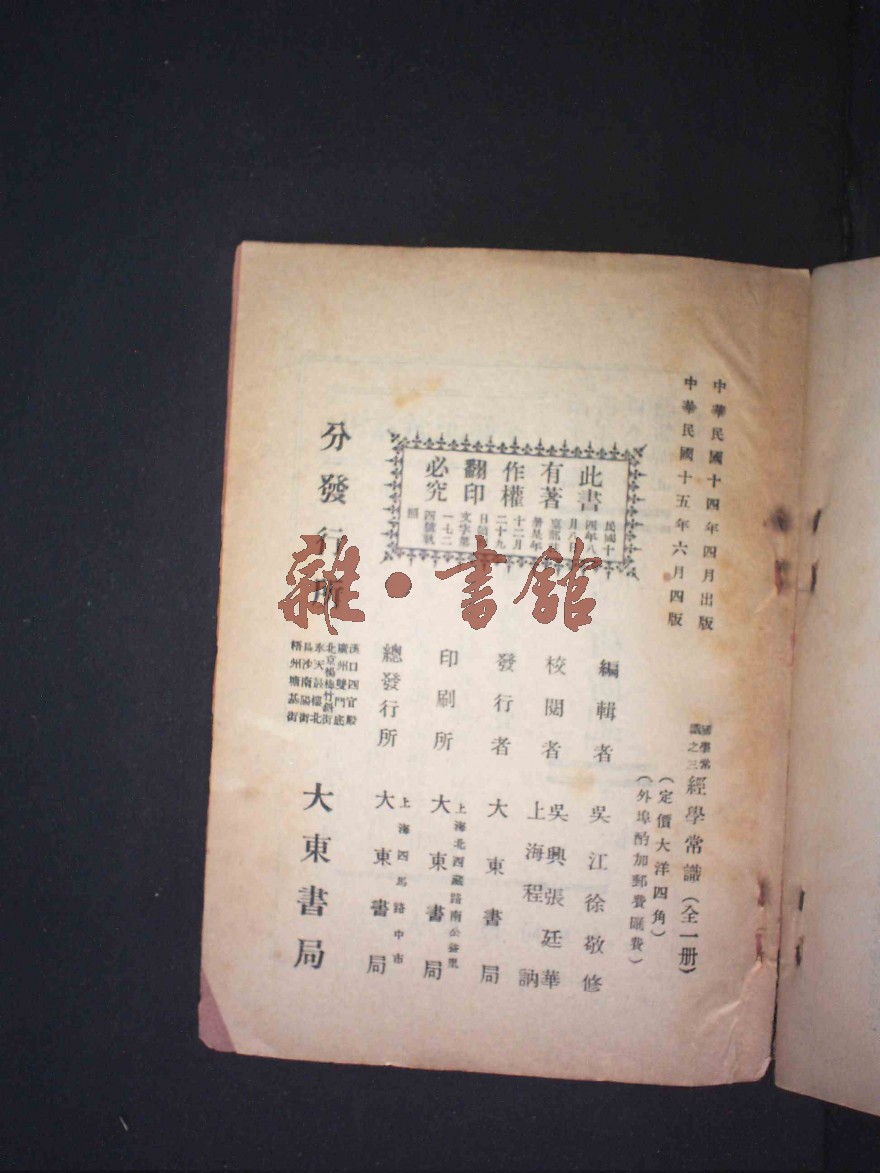 中華民國十四年四月出版
中華民國十五年六月四版
國學常識之三
經學常識（全一册）
（定價大洋四角）
（外埠酌加郵費匯費）
此書有著作權翻印必究
民國十四年八月八日
十二月二十九日
編輯者 吳江徐敬修
校閱者 吳興張廷華 上海程訥
發行者 大東書局
印刷所 上海北西藏路南公益里 大東書局
總發行所 上海四馬路中市 大東書局
分發行所 大東書局
漢口四官殿
廣州雙門底
北京楊梅竹斜街
奉天鼓樓北
長沙南陽街
梧州塘基街
雜·書館